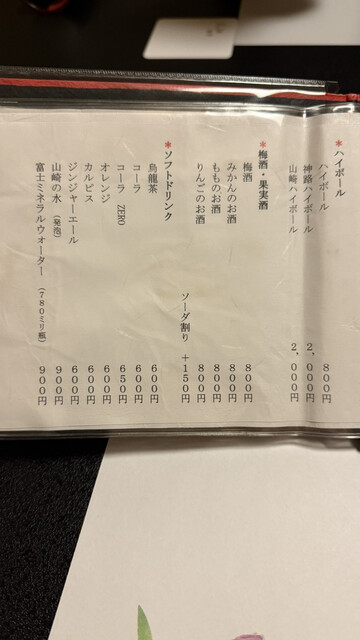 ＊ハイボール
ハイボール 800円
神路ハイボール 2,000円
山崎ハイボール 2,000円
＊梅酒・果実酒
梅酒 800円
みかんのお酒 800円
もものお酒 800円
りんごのお酒 800円
ソーダ割り ＋150円
＊ソフトドリンク
烏龍茶 600円
コーラ 600円
コーラ ZERO 650円
オレンジ 600円
カルピス 600円
ジンジャーエール 600円
山崎の水 (発泡) 900円
富士ミネラルウォーター (780ミリ瓶) 900円